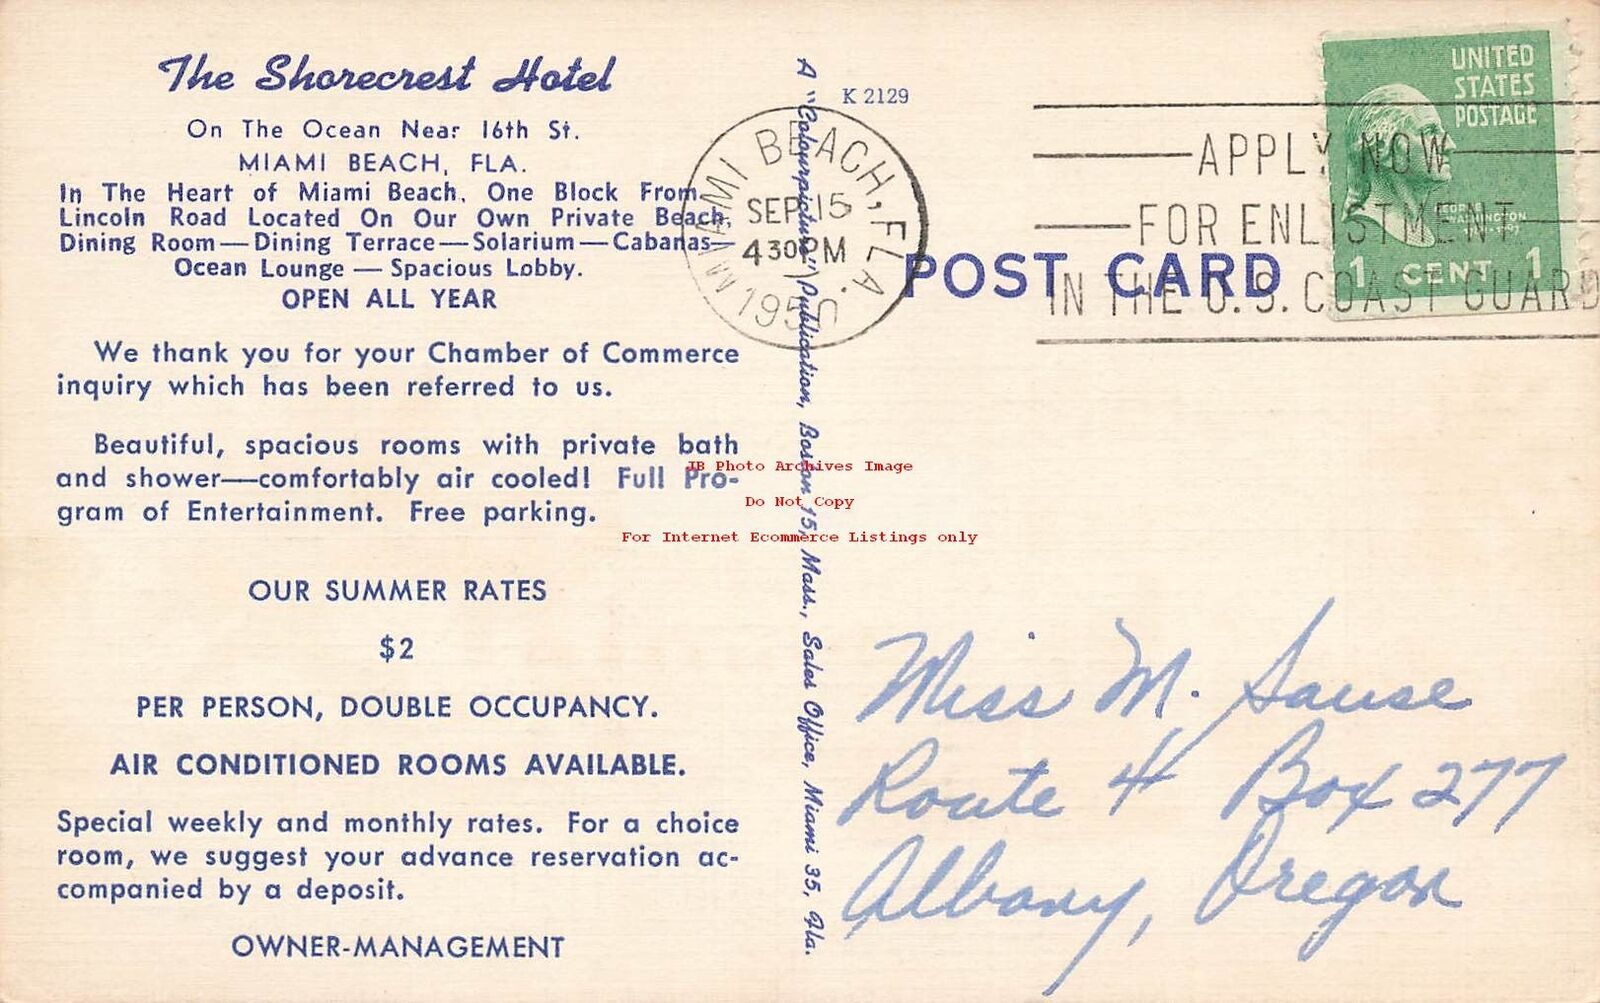 The Shorecrest Hotel
On The Ocean Near 16th St.
MIAMI BEACH, FLA.
In The Heart of Miami Beach, One Block From
Lincoln Road Located On Our Own Private Beach,
Dining Room—Dining Terrace—Solarium—Cabanas—
Ocean Lounge — Spacious Lobby.
OPEN ALL YEAR
We thank you for your Chamber of Commerce
inquiry which has been referred to us.
Beautiful, spacious rooms with private bath
and shower—comfortably air cooled! Full Pro-
gram of Entertainment. Free parking.
OUR SUMMER RATES
$2
PER PERSON, DOUBLE OCCUPANCY.
AIR CONDITIONED ROOMS AVAILABLE.
Special weekly and monthly rates. For a choice
room, we suggest your advance reservation ac-
companied by a deposit.
OWNER-MANAGEMENT
A "Colourpicture" Publication, Boston 15, Mass., Sales Office, Miami 35, Fla.
K 2129
MIAMI BEACH, FLA.
SEP 15
4 30 PM
1950
POST CARD
APPLY NOW
FOR ENLISTMENT
IN THE U.S. COAST GUARD
UNITED
STATES
POSTAGE
GEORGE
WASHINGTON
1789-1797
1 CENT 1
JB Photo Archives Image
Do Not Copy
For Internet Ecommerce Listings only
Miss M. Sause
Route 4 Box 277
Albany, Oregon